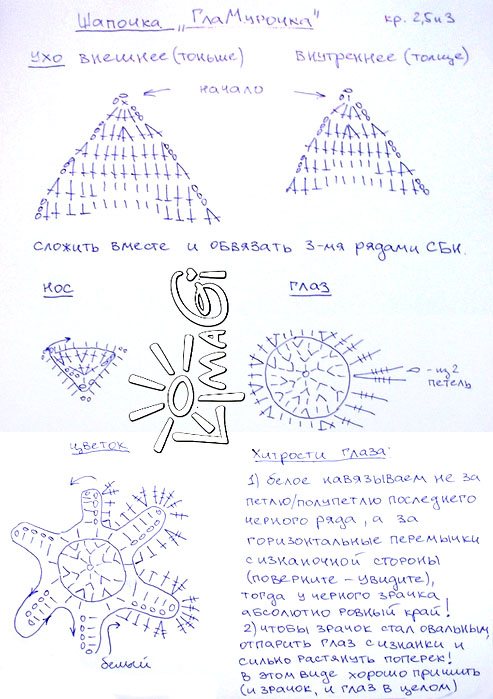 Шапочка „ГлаМурочка"
кр. 2,5 и 3
ухо внешнее (тоньше)
внутреннее (толще)
начало
сложить вместе и обвязать 3-мя рядами СБН.
нос
глаз
LiMAGi
- из 2
петель
цветок
белый
Хитрости глаза:
1) белое навязываем не за
петлю/полупетлю последнего
черного ряда, а за
горизонтальные перемычки
с изнаночной стороны
(поверните - увидите),
тогда у черного зрачка
абсолютно ровный край!
2) чтобы зрачок стал овальным,
отпарить глаз с изнанки и
сильно растянуть поперек!
в этом виде хорошо пришить
(и зрачок, и глаз в целом)